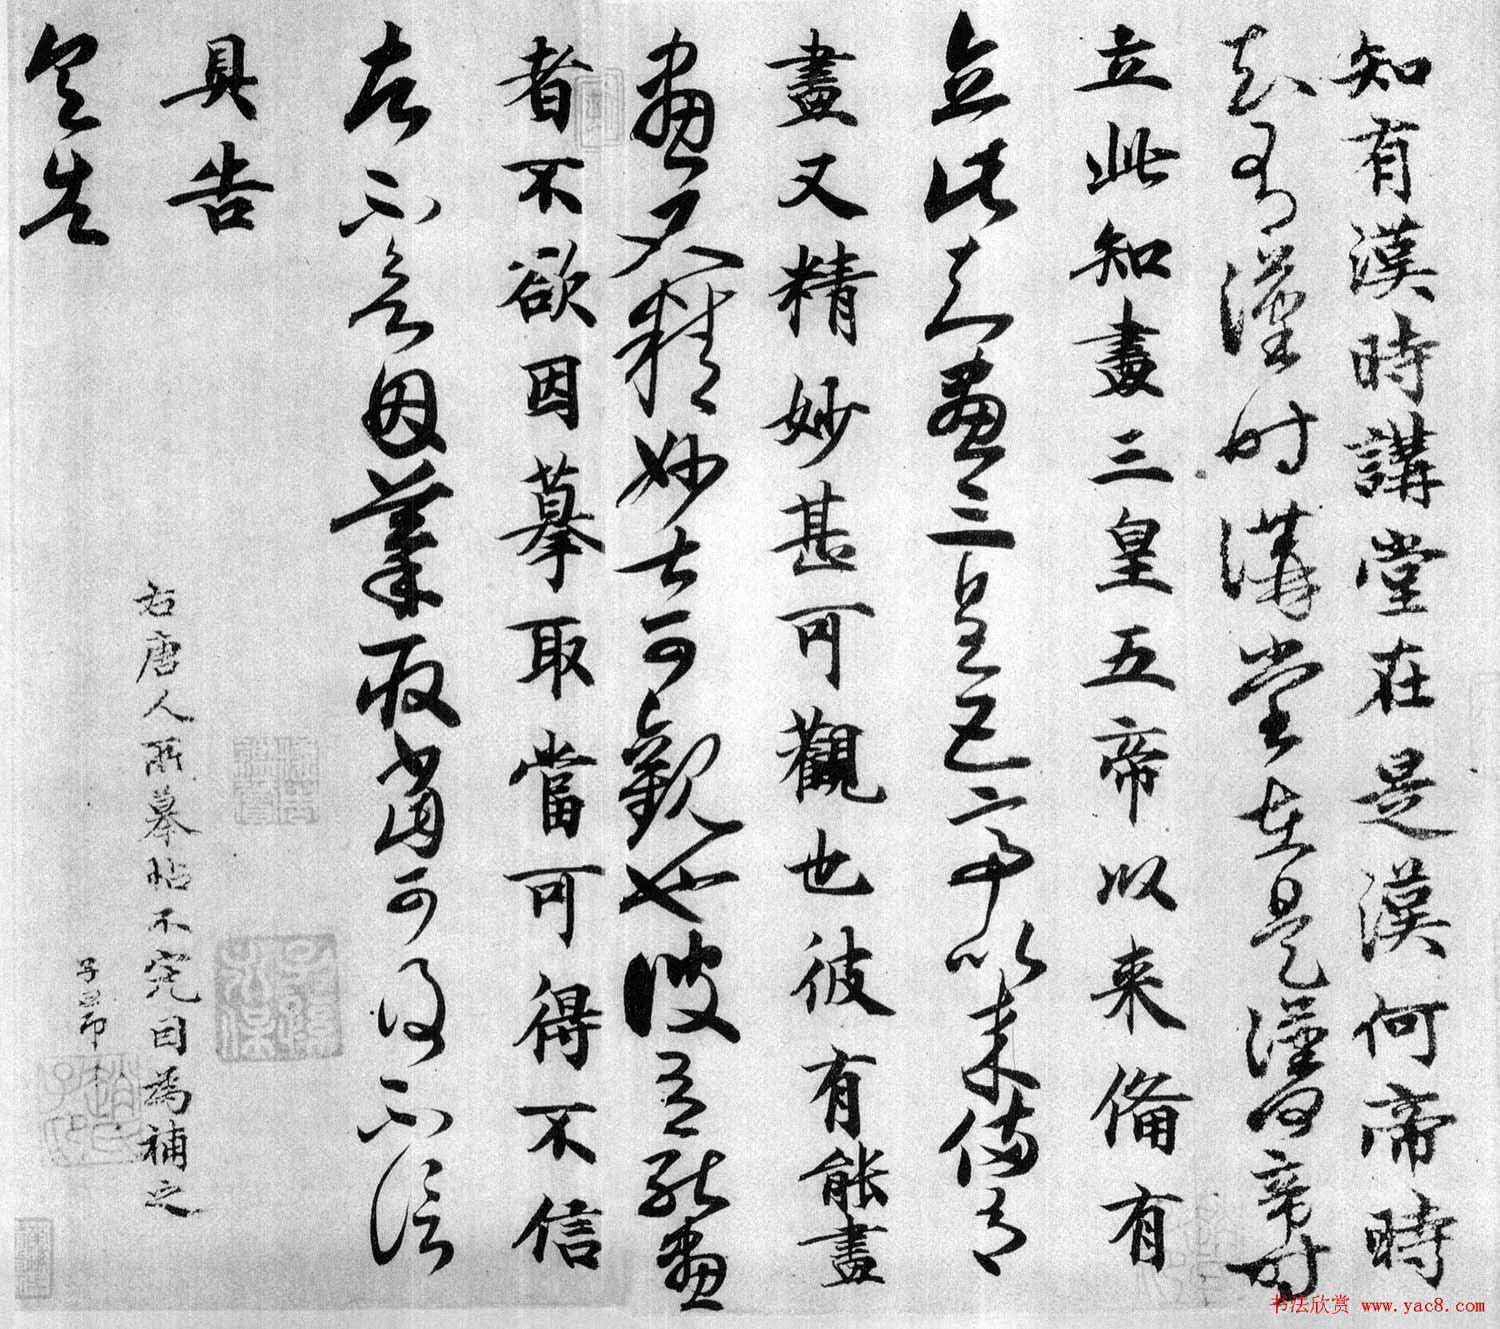 知有漢時講堂在是漢何帝時
知有漢時講堂在是漢何帝時
立此知畫三皇五帝以来備有
立此知畫三皇五帝以来備有
畫又精妙甚可觀也彼有能畫
畫又精妙甚可觀也彼有能畫
者不欲因摹取當可得不信
者不欲因摹取當可得不信
具告
具告
右唐人所摹帖不完因為補之
子昂
书法欣赏 www.yac8.com